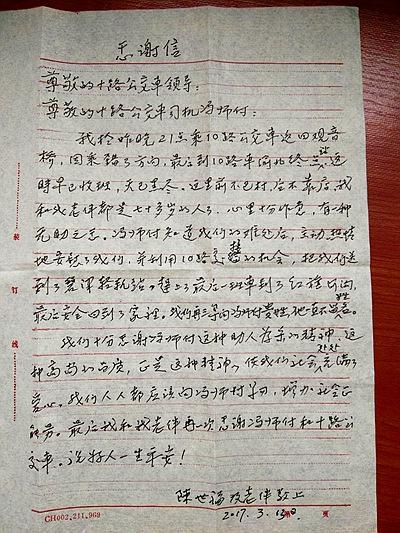 感谢信
尊敬的十路公交车领导:
尊敬的十路公交车司机冯师付:
我于昨晚21点乘10路公交车返回观音
桥,因乘错了方向,最后到10路车的终点站,这
时车已收班,天已黑尽。这里前不巴村,后不靠店,我
和我老伴都是七十多岁的人了,心里十分着急,有一种
无助之感。冯师付知道我们的难处后,主动热情
地安抚了我们,并利用10路交替的机会,把我们送
到了 轻轨站,赶上了最后一班车到了红旗河沟,
最后安全回到了家裡。我们再三要问冯师付贵姓,他
我们十分感谢冯师付这种助人为乐的精神,这
种高尚的品质,正是这种精神,使我们社会处处充满了
爱心。我们人人都应该向冯师付学习,增加社会正
能劳。最后我和我老伴再一次感谢冯师付和十路公
交车。祝好人一生平安!
陳世福及老伴敬上
2017.3.13日
第 页
装 订 线
CH002.211.969